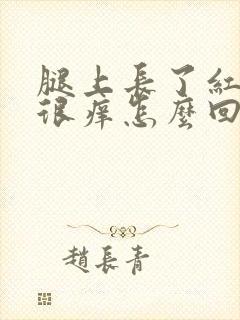 腿上長了紅
很痒怎麼回
趙長青